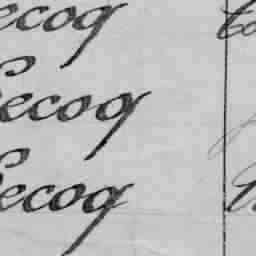 Lecoq
Lecoq
Lecoq